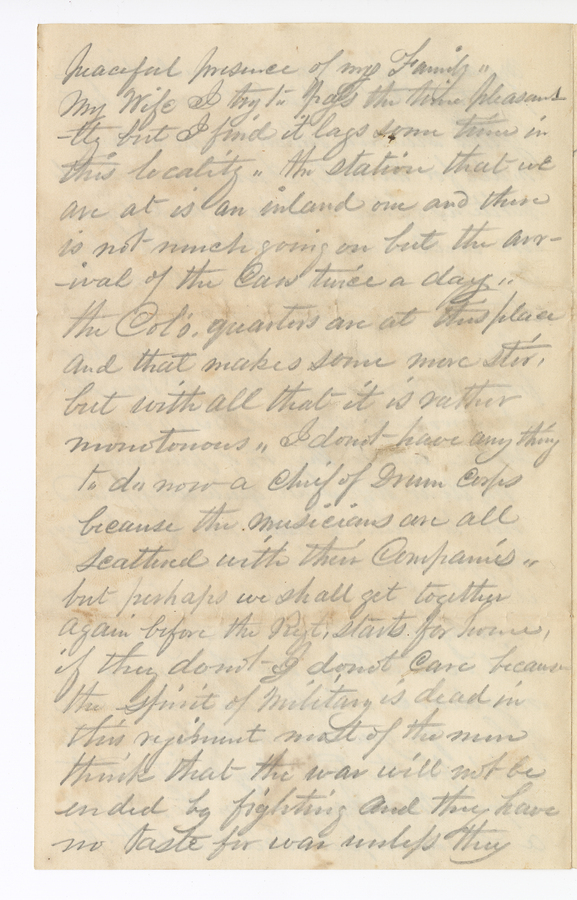 peaceful presence of my Family "
My Wife I try to pass the time pleasant
-tly but I find it lags some time in
this locality " the station that we
are at is an inland one and there
is not much going on but the arr-
-ival of the Cars twice a day "
the Col's. quarters are at this place
and that makes some more Stir,
but with all that it is rather
monotonous " I don't have any thing
to do now a Chief of Drum Corps
because the musicians are all
scattered with their Companies "
but perhaps we shall get together
again before the Regt, starts for home,
if they do not I do not Care because
the Spirit of Military is dead in
this regiment most of the men
think that the war will not be
ended by fighting and they have
no taste for war unless they